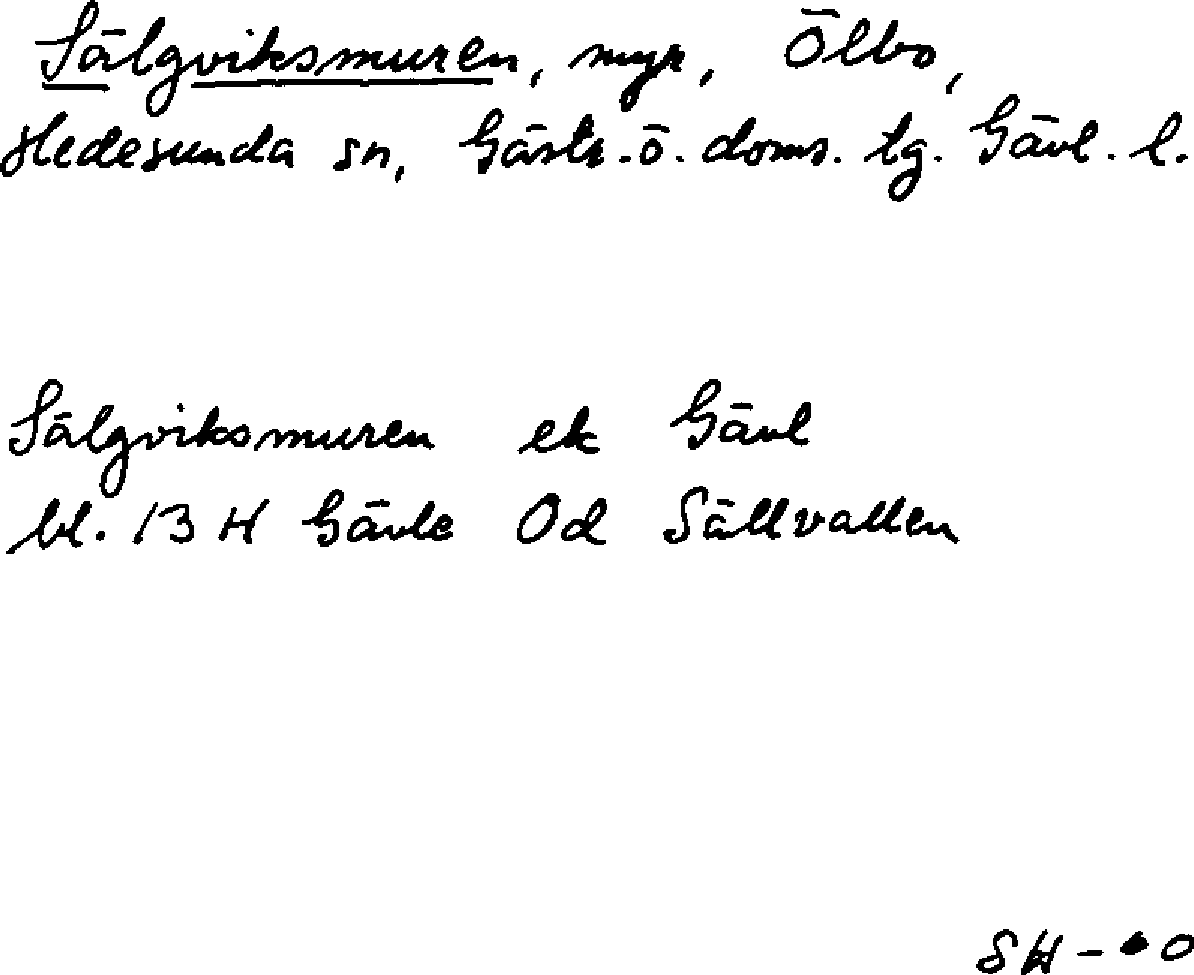 Sälgviksmuren, myr, Ölbo,
Hedesunda sn, Gästr. ö. doms. tg. Gävl. l.
Sälgviksmuren ek Gävl
bl. 13 H Gävle 0d Sällvallen